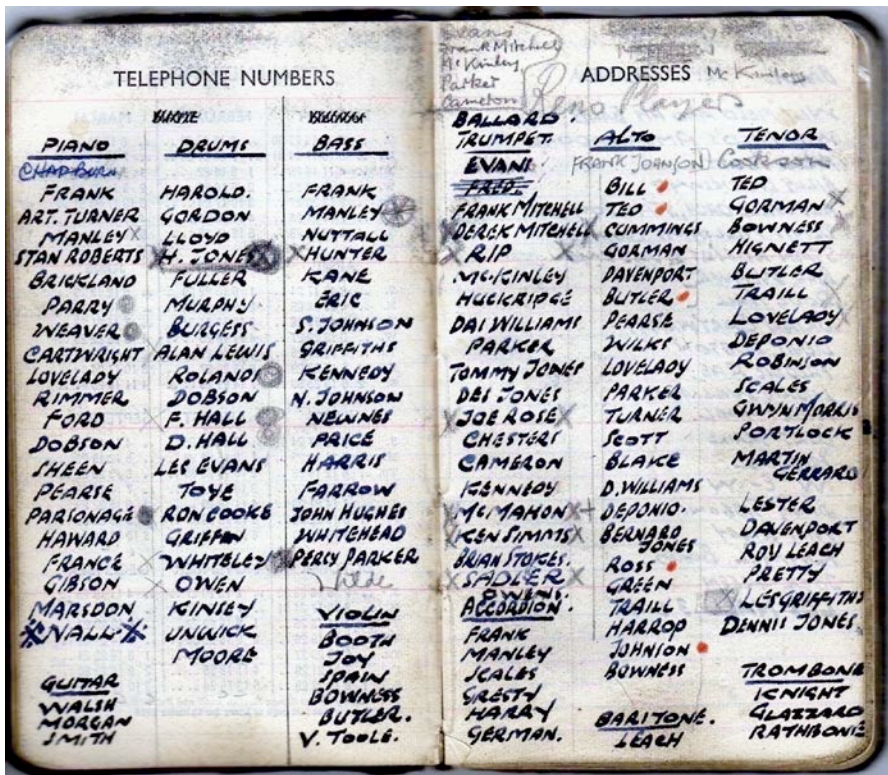 TELEPHONE NUMBERS
PIANO
CHADBURN
FRANK
ART. TURNER
MANLEY X
STAN ROBERTS
BRICKLAND
PARRY
WEAVER
CARTWRIGHT
LOVELADY
RIMMER
FORD
DOBSON
SHEEN
PEARSE
PARSONAGE
HAWARD
FRANCE
GIBSON
MARSDON
X NALL X
GUITAR
WALSH
MORGAN
SMITH
DRUMS
HAROLD.
GORDON
LLOYD
X H. JONES X
FULLER
MURPHY.
BURGESS
ALAN LEWIS
ROLANDS
DOBSON
F. HALL
D. HALL
LES EVANS
TOYE
RON COOKE
GRIFFIN
WHITELEY
OWEN
KINSEY
UNWICK
MOORE
BASS
FRANK
MANLEY
NUTTALL
X HUNTER
KANE
ERIC
S. JOHNSON
GRIFFITHS
KENNEDY
N. JOHNSON
NEWNES
PRICE
HARRIS
FARROW
JOHN HUGHES
WHITEHEAD
PERCY PARKER
Wilde
VIOLIN
BOOTH
JOY
SPAIN
BOWNESS
BUTLER.
V. TOOLE.
Evans
Frank Mitchell
McKinley
Parker
Cameron
Reno Players
ADDRESSES
McKinley
BALLARD.
TRUMPET.
EVANS
FRED.
FRANK MITCHELL
X DEREK MITCHELL X
X RIP X
MC.KINLEY
HUCKRIDGE
DAI WILLIAMS
PARKER
TOMMY JONES
DES JONES
X JOE ROSE X
CHESTERS
CAMERON
KENNEDY
X MCMAHON X
X KEN SIMMS X
BRIAN STOKES.
X SADLER X
OWENS.
ACCORDION.
FRANK
MANLEY
SCALES
GRESTY
HARRY
GERMAN.
ALTO
FRANK JOHNSON
BILL
TED
CUMMINGS
GORMAN
DAVENPORT
BUTLER
PEARSE
WILKS
LOVELADY
PARKER
TURNER
SCOTT
BLAKE
D. WILLIAMS
+ DEPONIO.
BERNARD
JONES
ROSS
GREEN
TRAILL
HARROP
JOHNSON
BOWNESS
BARITONE.
LEACH
TENOR
Cookson
TED
GORMAN X
BOWNESS
HIGNETT
BUTLER
TRAILL
LOVELADY
DEPONIO
ROBINSON
SCALES
GWYN MORRIS
PORTLOCK
MARTIN
GERRARD
LESTER
DAVENPORT
ROY LEACH
PRETTY
X LES GRIFFITHS
DENNIS JONES.
TROMBONE
KNIGHT
GLAZZARD
RATHBONE